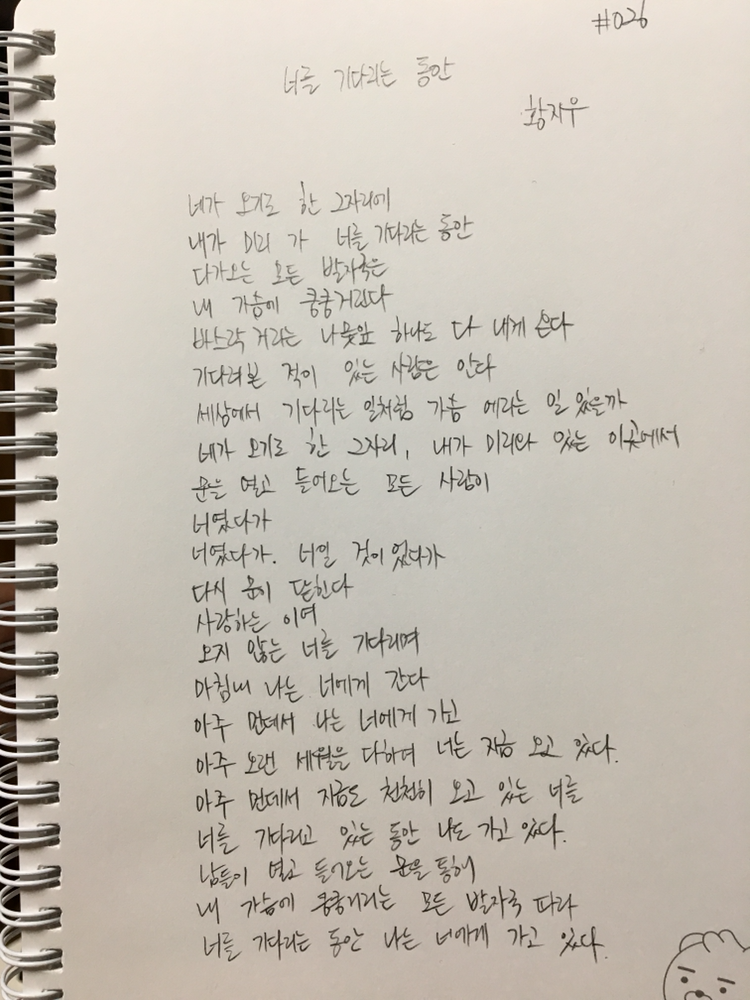 #026
너를 기다리는 동안
황지우
네가 오기로 한 그자리에
내가 미리 가 너를 기다리는 동안
다가오는 모든 발자국은
내 가슴에 쿵쿵거린다
바스락 거리는 나뭇잎 하나도 다 내게 온다
기다려본 적이 있는 사람은 안다
세상에서 기다리는 일처럼 가슴 에리는 일 있을까
네가 오기로 한 그자리, 내가 미리와 있는 이곳에서
문을 열고 들어오는 모든 사람이
너였다가
너였다가. 너일 것이었다가
다시 문이 닫힌다
사랑하는 이여
오지 않는 너를 기다리며
마침내 나는 너에게 간다
아주 먼데서 나는 너에게 가고
아주 오랜 세월을 다하여 너는 지금 오고 있다.
아주 먼데서 지금도 천천히 오고 있는 너를
너를 기다리고 있는 동안 나도 가고 있다.
남들이 열고 들어오는 문을 통해
내 가슴에 쿵쿵거리는 모든 발자국 따라
너를 기다리는 동안 나는 너에게 가고 있다.